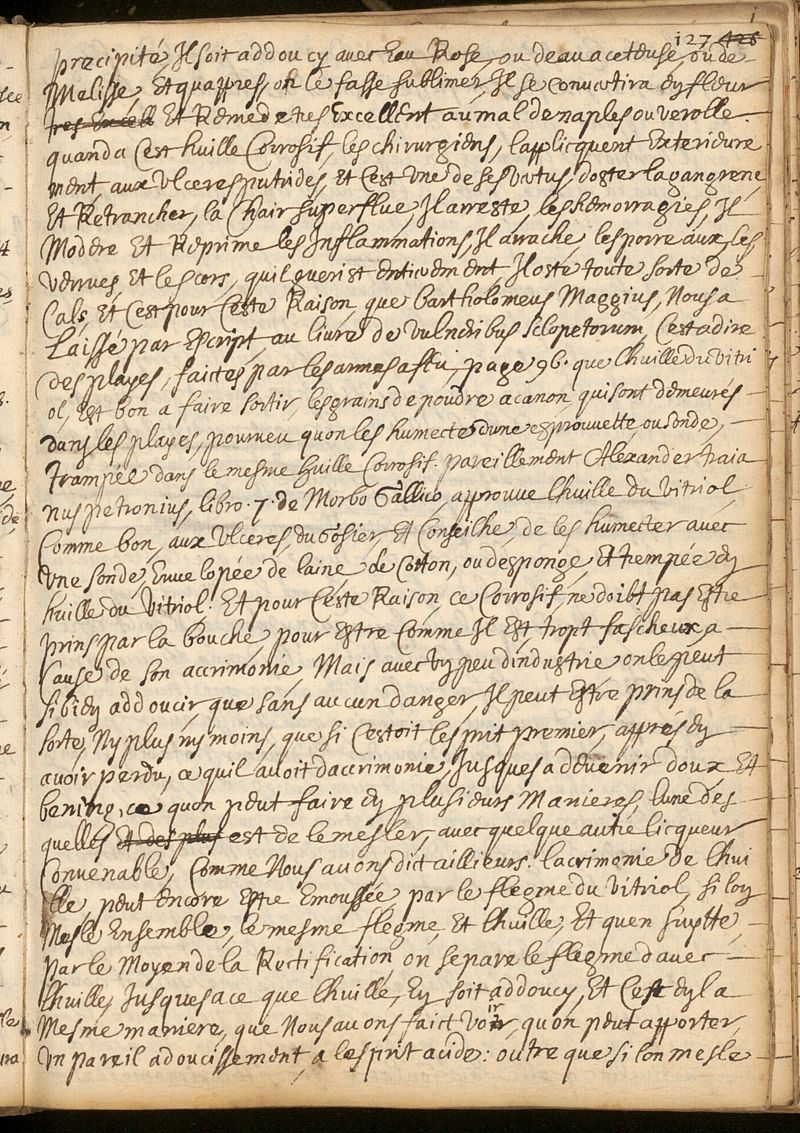 127 426
precipité, Il soit addoucy avec Eau Rose, ou deau aceteuse, ou de
Melisse, Et quappres, on le fasse sublimer, Il se convertira en fleur
tres Excell Et Remede tres Excellent au mal de naples ou verolle.
quand a Cest huille Corrosif, les chirurgiens, lapplicquent Exterieure
ment, aux Ulceres putrides, Et Cest Une de ses vertus, doster la gangrene,
Et Retrancher, la Chair superflue, Il arreste, les Hemorragies, Il
Modere Et Reprime les Inflammations, Il arrache, les porreaux, les
verrues, Et les cors, quil guerist entierement, Il oste toute sorte de
Cals, Et Cest pour Ceste Raison que bartholomeus Maggius, Nous a
Laissé par Escript, au livre de vulneribus sclopetorum, Cest a dire
des playes, faictes par les armes a feu, page 96. que lhuille du vitri
ol, Est bon a faire sortir, les grains de poudre a canon, qui sont demeurés
dans les playes, pourveu quon les humecte dune esprouvette, ou sonde,
trampée dans le mesme huille Corrosif. pareillement Alexander traia
nus petronius, libro. 7. de Morbo Gallico, approuve lhuille du vitriol,
Comme bon, aux Ulceres, du Gosier, Et Conseilhe, de les humecter avec
Une sonde, Envelopée de laine de Cotton, ou desponge, Et trempée en
huille du vitriol. Et pour Ceste Raison, ce Corrosif, ne doibt pas Estre
prins par la bouche, pour Estre Comme Il Est tropt fascheux, a
Cause de son accrimonie, Mais avec un peu dindustrie on le peut
si bien addoucir, que sans aucun danger, Il peut Estre prins de la
sorte, Ny plus ny moins, que si Cestoit lesprit premier, apprés en
avoir perdu, ce quil avoit daccrimonie, Jusques a devenir doux Et
bening, ce quon peut faire en plusieurs Manieres, lune des
quelles Et des plus est de le mesler, avec quelque autre licqueur
Convenable, Comme Nous avons dict aillieurs. lacrimonie de lhui
lle, peut encore Estre Emoussée, par le flegme du vitriol, si lon
Mesle Ensemble, le mesme flegme, Et lhuille, Et quen suytte,
par le Moyen de la Rectification, on separe le flegme davec
lhuille, Jusques a ce que lhuille, En soit addoucy, Et Cest en la
Mesme maniere, que Nous avons faict voir, quon peut apporter,
un pareil adoucissement, a lesprit acide: outre que si lon mesle